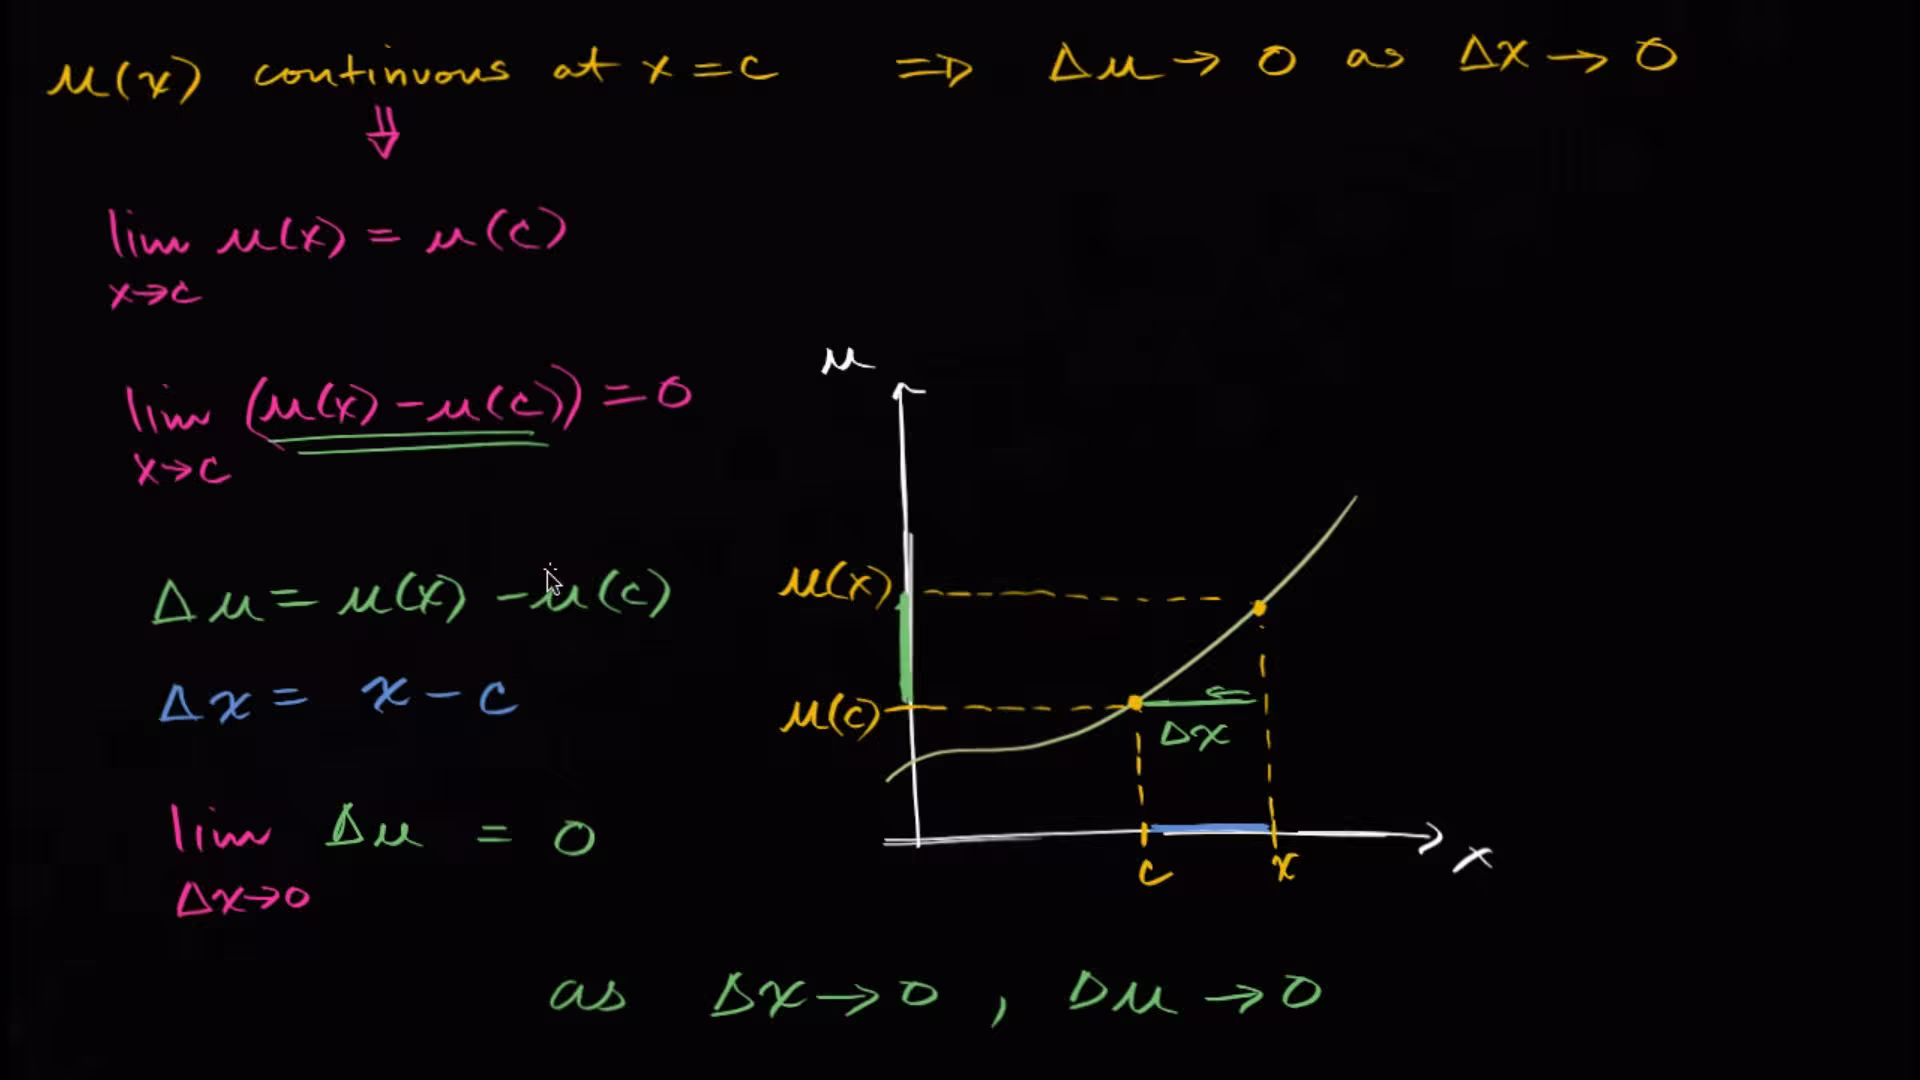 u(x) continuous at x = c ⇒ Δu → 0 as Δx → 0
⇓
lim u(x) = u(c)
x→c
lim (u(x) - u(c)) = 0
x→c
Δu = u(x) - u(c)
Δx = x - c
lim Δu = 0
Δx→0
u
u(x)
u(c)
Δx
c
x
x
as Δx → 0 , Δu → 0